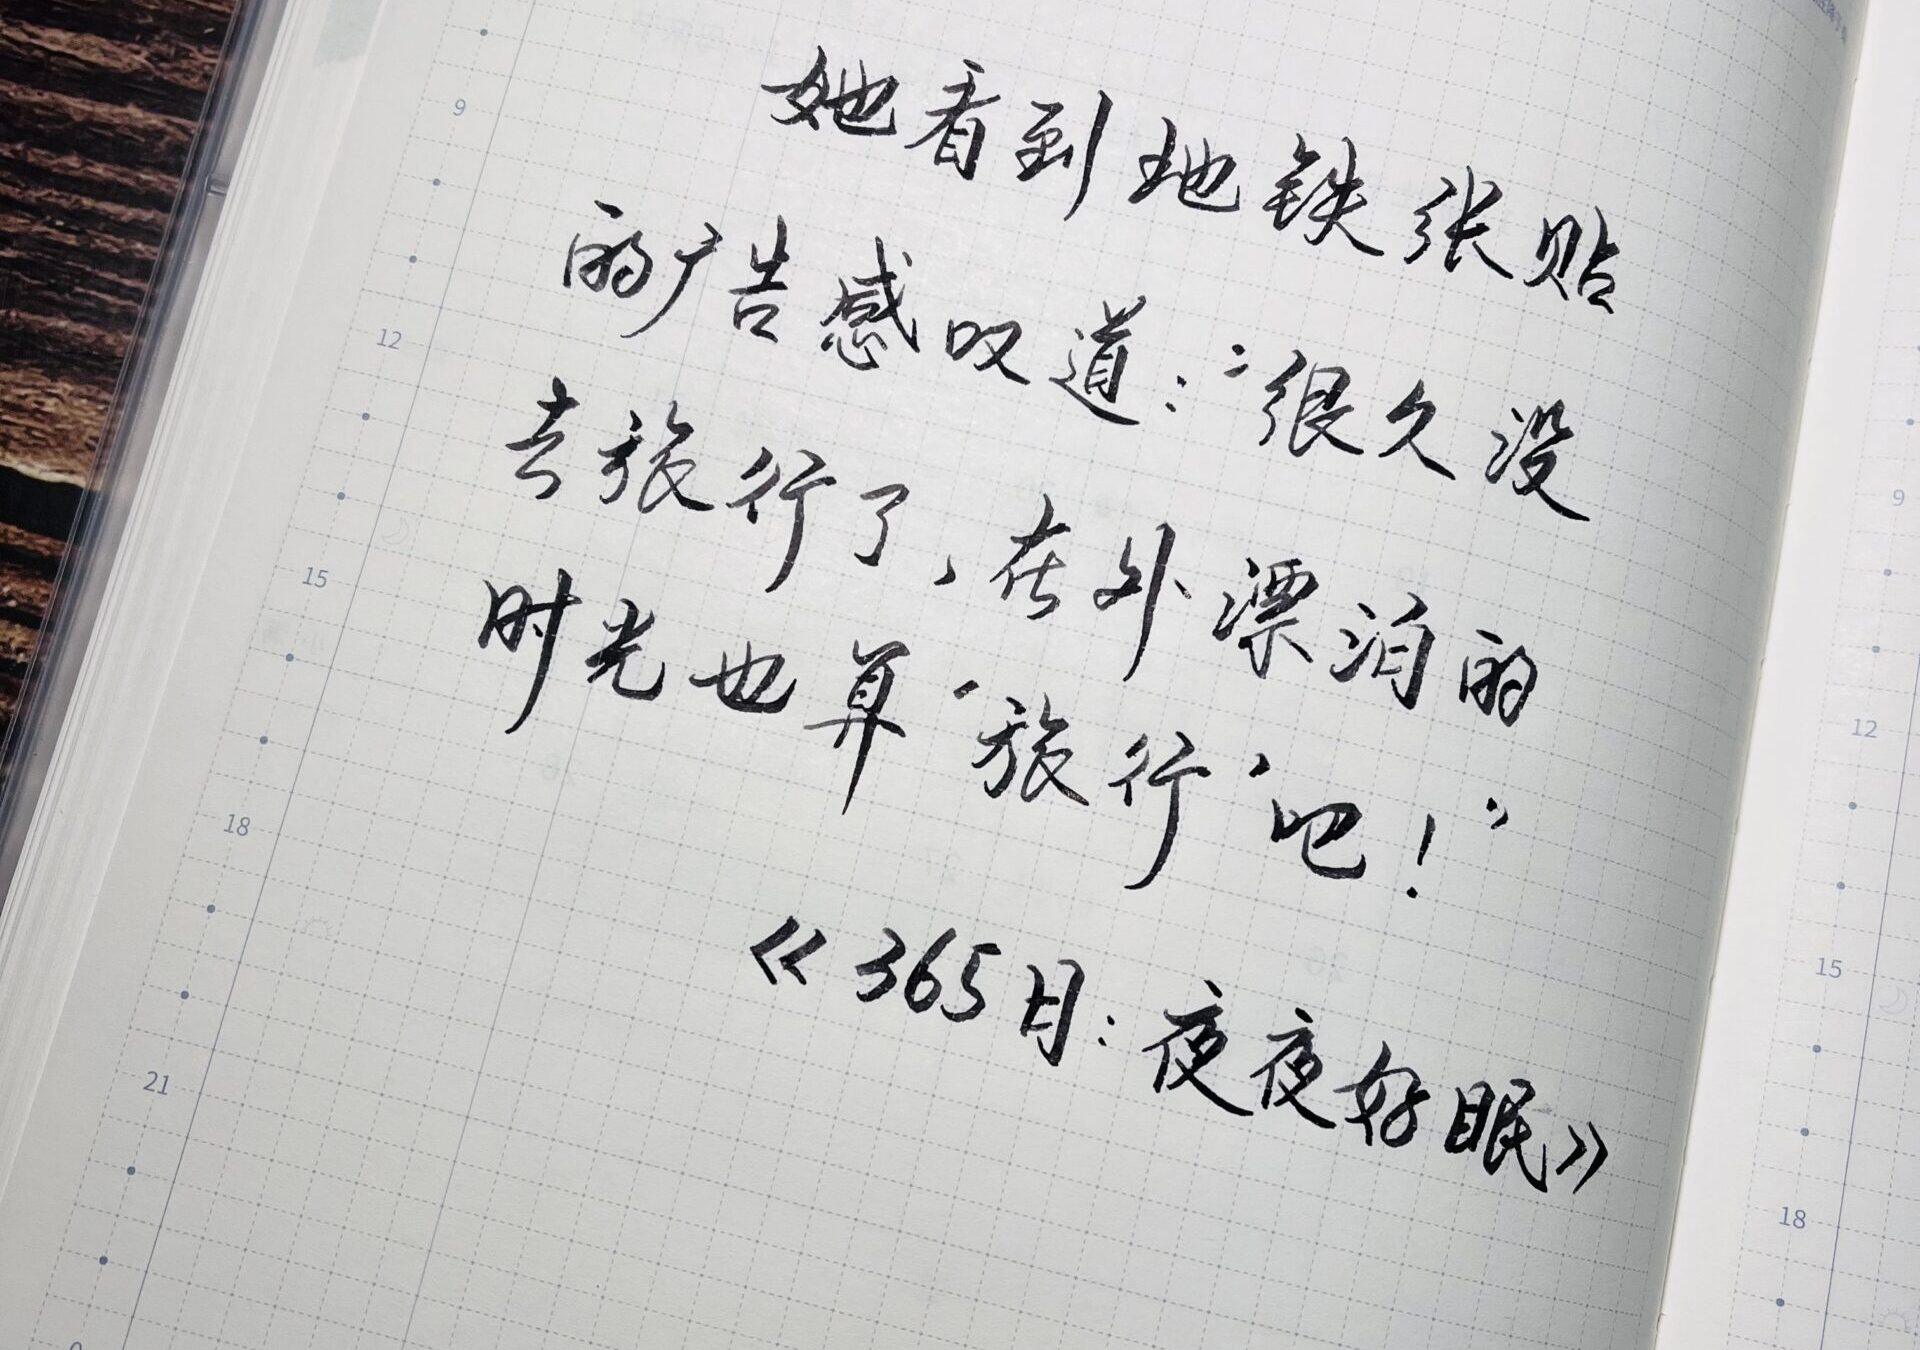 她看到地铁张贴
的广告感叹道：“很久没
去旅行了，在外漂泊的
时光也算‘旅行’吧！”
《365日：夜夜好眠》
9
12
15
18
21
9
12
15
18